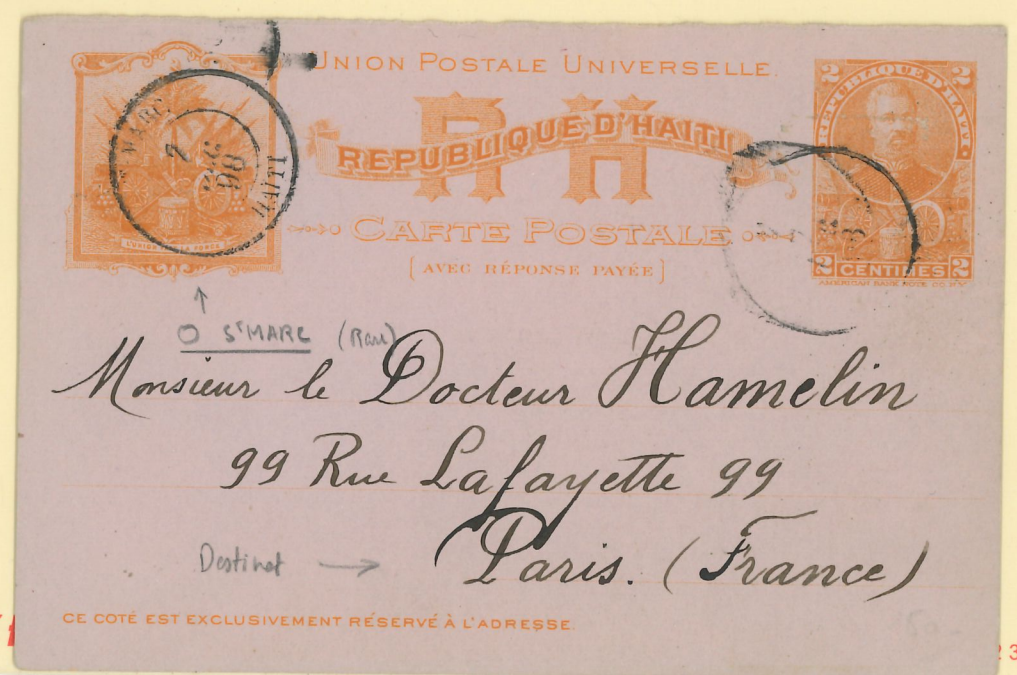 UNION POSTALE UNIVERSELLE.
RH
REPUBLIQUE D'HAITI
CARTE POSTALE
(AVEC RÉPONSE PAYÉE)
L'UNION LA FORCE
Sᵗ MARC
2
HAITI
2 2
REPUBLIQUE D'HAITI
2 CENTIMES 2
AMERICAN BANK NOTE CO. N.Y.
O Sᵗ MARC (Rare)
Monsieur le Docteur Hamelin
99 Rue Lafayette 99
Destinat → Paris. (France)
CE COTÉ EST EXCLUSIVEMENT RÉSERVÉ À L'ADRESSE.
23